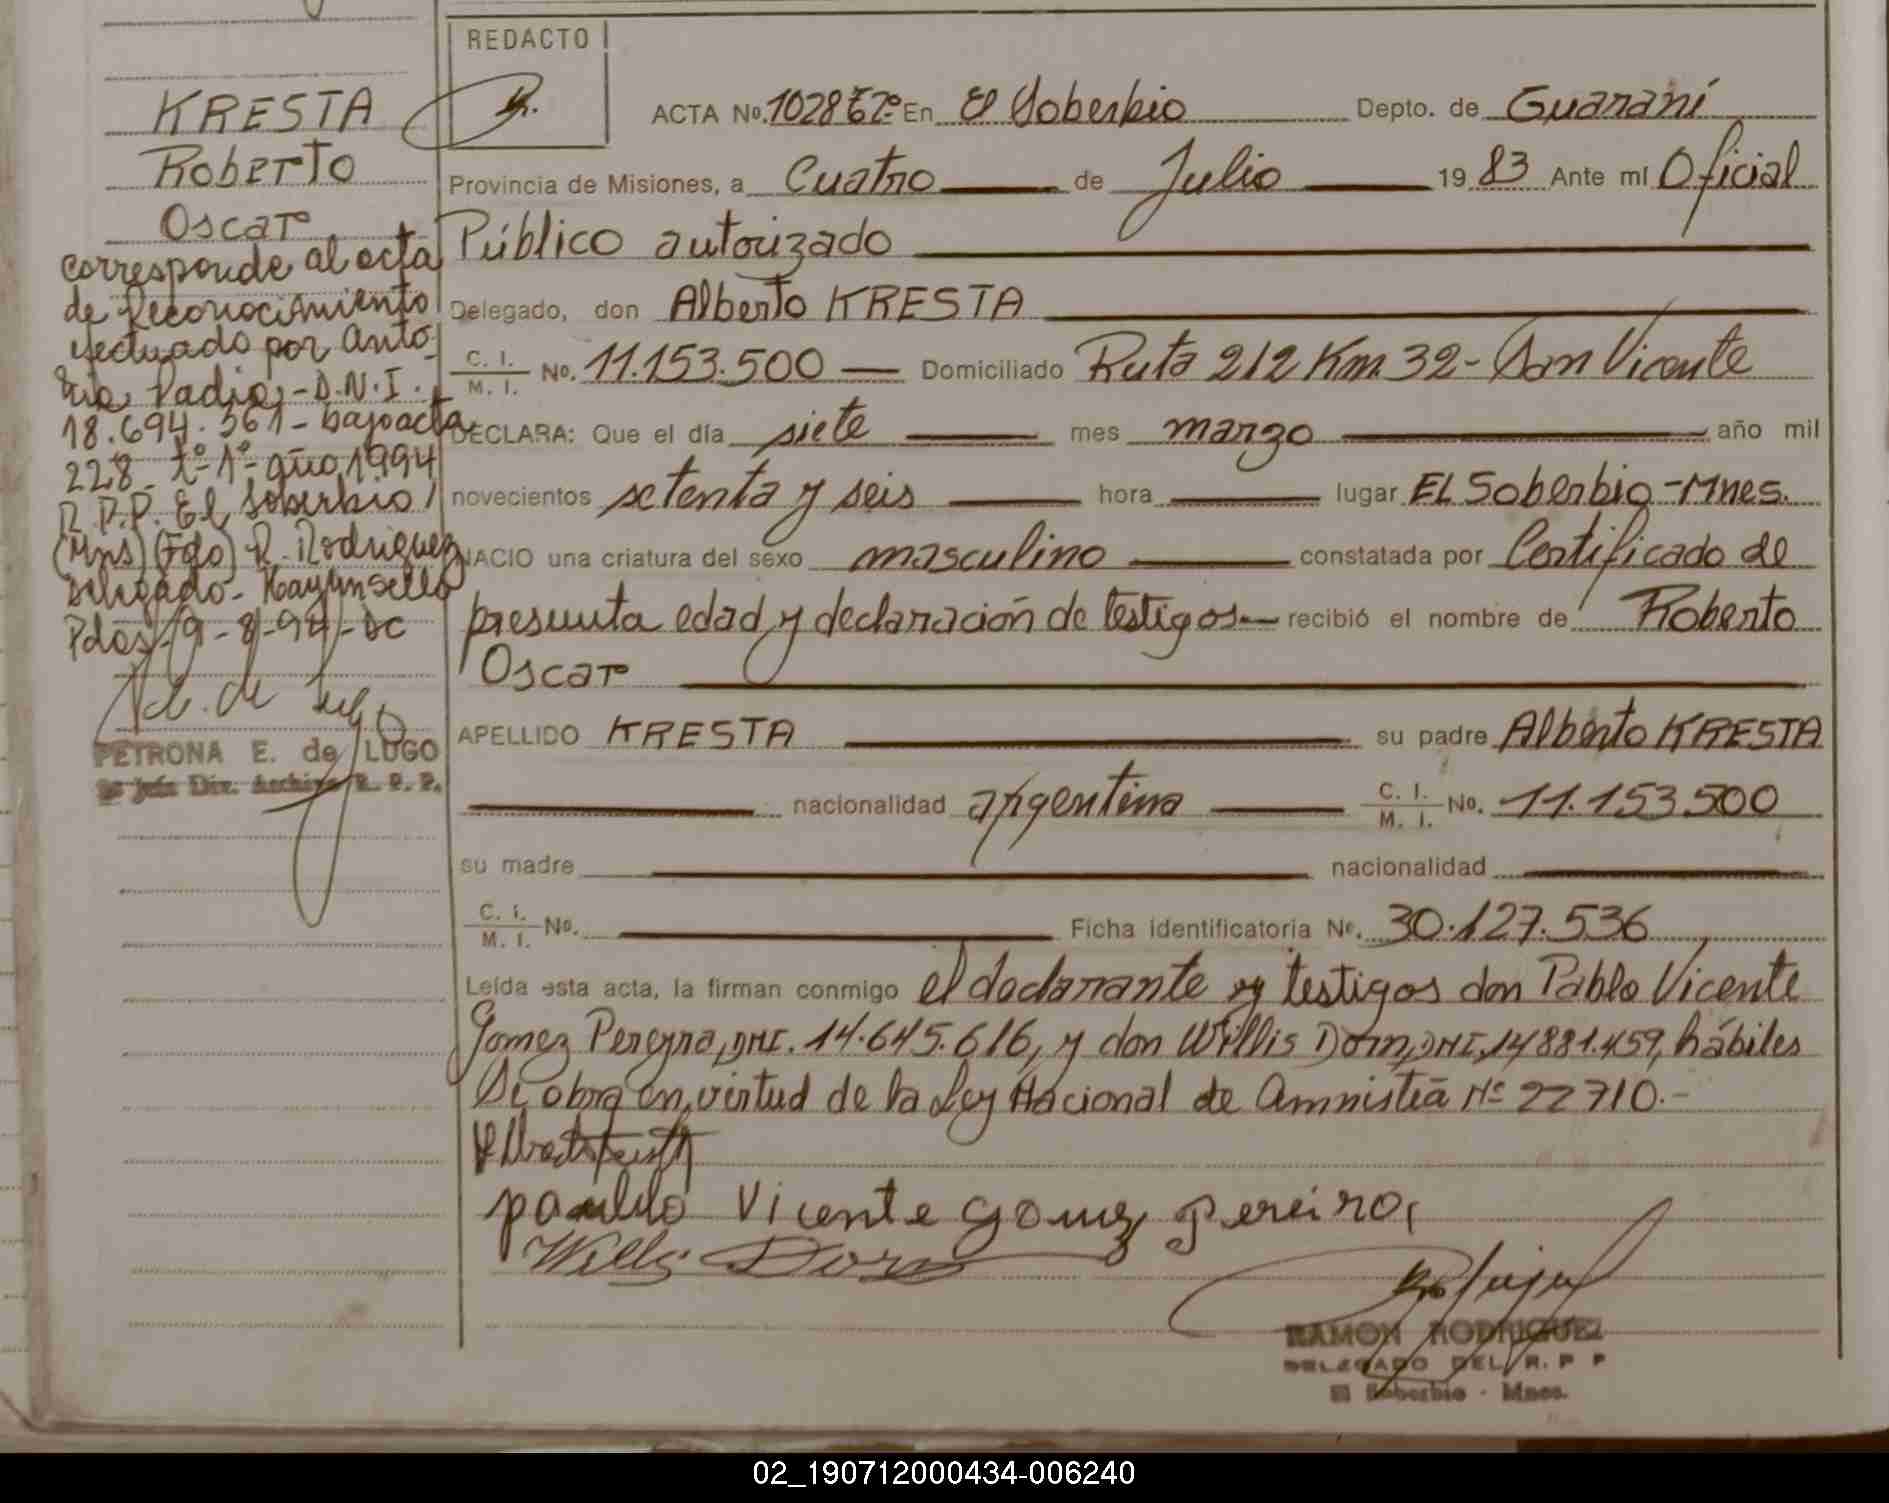 KRESTA
Roberto
Oscar
corresponde al acta
de Reconocimiento
efectuado por Anto-
nia Padia - D.N.I.
18.694.361 - bajo acta
228 - tº 1º año 1994
R.P.P. El Soberbio
(Mns) (Fdo) R. Rodriguez
Delegado - Hay un sello
Pdas 19-8-94
PETRONA E. de LUGO
REDACTO
ACTA Nº. 1028 Tº 2º En El Soberbio Depto. de Guaraní
Provincia de Misiones, a Cuatro de Julio 1983 Ante mí Oficial
Público autorizado
Delegado, don Alberto KRESTA
C. I. / M. I. No. 11.153.500 — Domiciliado Ruta 212 Km. 32 - San Vicente
DECLARA: Que el día siete mes marzo año mil
novecientos setenta y seis hora lugar EL Soberbio - Mnes.
NACIO una criatura del sexo masculino constatada por Certificado de
presunta edad y declaración de testigos — recibió el nombre de Roberto
Oscar
APELLIDO KRESTA su padre Alberto KRESTA
nacionalidad argentina C. I. / M. I. No. 11.153.500
su madre nacionalidad
C. I. / M. I. No. Ficha identificatoria Nº. 30.127.536
Leída esta acta, la firman conmigo el declarante y testigos don Pablo Vicente
Gomez Pereyra, DNI. 14.645.616, y don Willis Dorn, DNI, 14881.459, hábiles
Se obra en virtud de la Ley Nacional de Amnistia Nº 22710.-
Vicente gomez pereira
Willis Dorn
RAMON RODRIGUEZ
DELEGADO DEL R. P P
El Soberbio - Mnes.
02_190712000434-006240